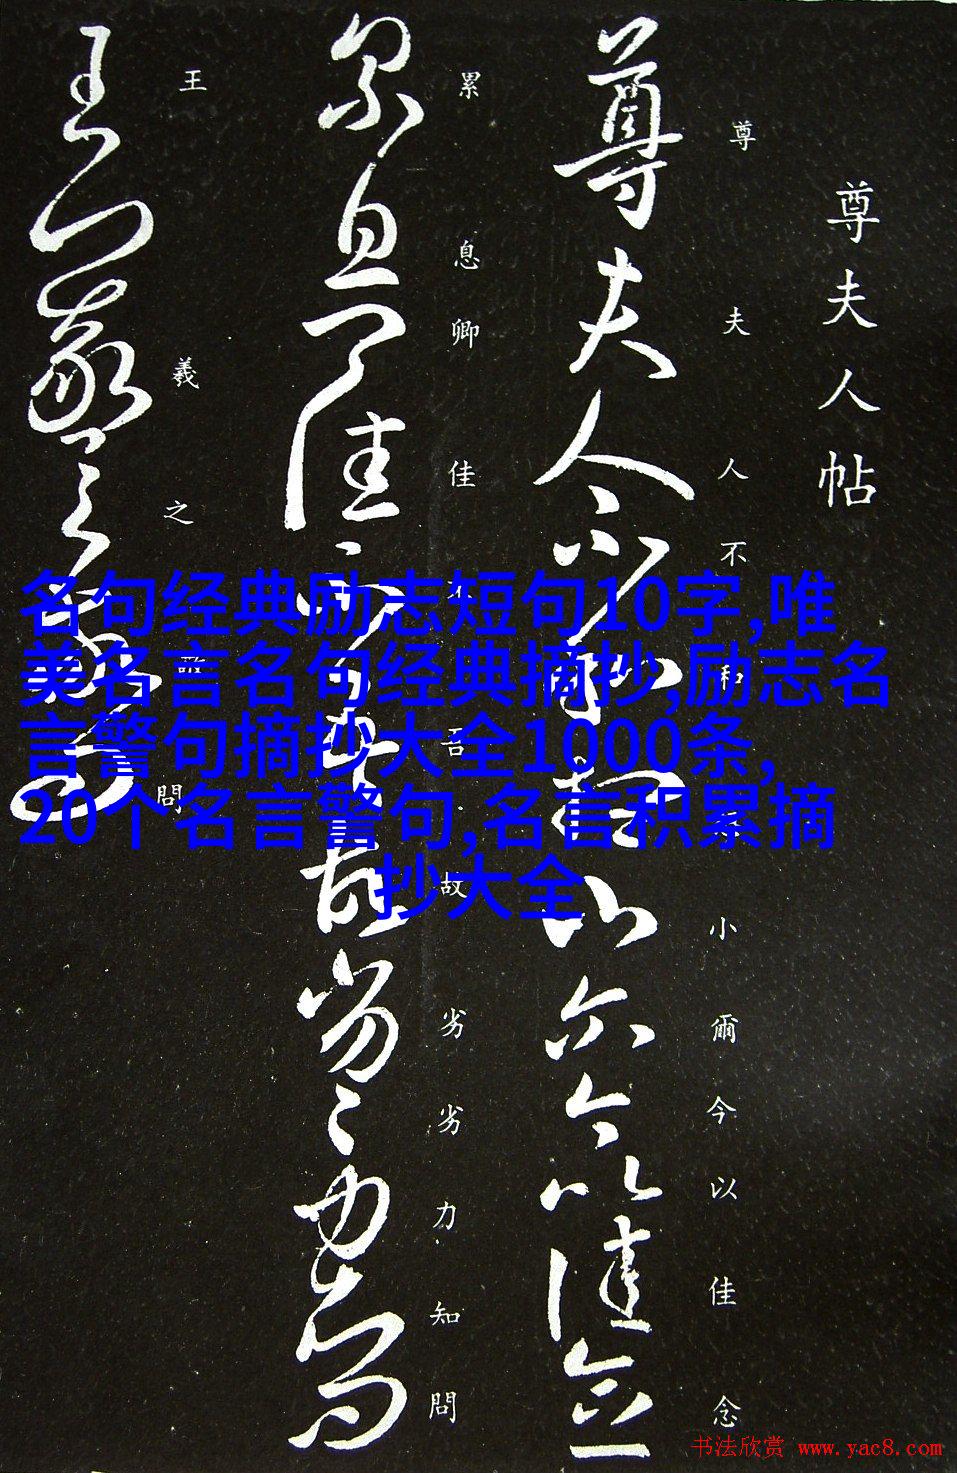 尊夫人帖
尊夫人不和想小爾今以佳念
累息卿佳不吾故劣劣力知問
王羲之敬問
名句经典励志短句10字,唯
美名言名句经典摘抄,励志名
言警句摘抄大全1000条,
20个名言警句,名言积累摘
抄大全
书法欣赏 www.yac8.com